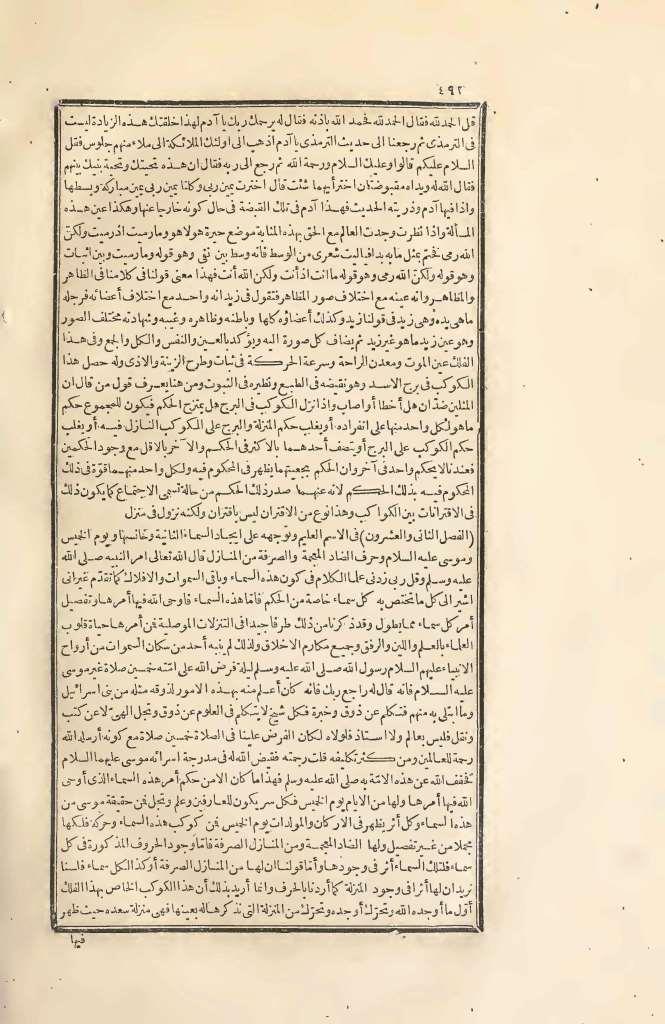 ٤٩٢
قل الحمد لله فقال الحمد لله فحمد الله باذنه فقال له يرحمك ربك يا آدم لهذا خلقتك هذه الزيادة ليست
فى الترمذى ثم رجعنا الى حديث الترمذى يا آدم اذهب الى اولئك الملائكة الى ملاء منهم جلوس فقل
السلام عليكم قالوا وعليك السلام ورحمة الله ثم رجع الى ربه فقال ان هذه تحيتك وتحية بنيك بينهم
فقال الله له ويداه مقبوضتان اختر أيهما شئت قال اخترت يمين ربى وكلتا يدى ربى يمين مباركة وبسطها
واذا فيها آدم وذريته الحديث فهذا آدم فى تلك القبضة فى حال كونه خارجا عنها وهكذا عين هذه
المسألة واذا نظرت وجدت العالم مع الحق بهذه المثابة موضع حيرة هو لا هو وما رميت اذ رميت ولكن
الله رمى فختم بمثل ما به بدا فياليت شعرى من الوسط فانه وسط بين نفى وهو قوله وما رميت وبين اثبات
وهو قوله ولكن الله رمى وهو قوله ما انت اذ أنت ولكن الله أنت فهذا معنى قولنا فى كلامنا فى الظاهر
والمظاهر وانه عينه مع اختلاف صور المظاهر فنقول فى زيد انه واحد مع اختلاف أعضائه فرجله
ما هى يده وهى زيد فى قولنا زيد وكذلك أعضاؤه كلها وباطنه وظاهره وغيبه وشهادته مختلف الصور
وهو عين زيد ما هو غير زيد ثم يضاف كل صورة اليه ويؤكد بالعين والنفس والكل والجمع وفى هذا
الفلك عين الموت ومعدن الراحة وسرعة الحركة فى ثبات وطرح الزينة والاذى وله حصل هذا
الكوكب فى برج الاسد وهو نقيضه فى الطبع ونظيره فى الثبوت ومن هنا يعرف قول من قال ان
المثلين ضدان هل أخطا أو اصاب واذا نزل الكوكب فى البرج هل يمتزج الحكم فيكون للمجموع حكم
ما هو لكل واحد منهما على انفراده أو يغلب حكم المنزلة والبرج على الكوكب النازل فيه أو يغلب
حكم الكوكب على البرج أو يتصف أحدهما بالاكثر فى الحكم والآخر بالاقل مع وجود الحكمين
فعندنا لا يحكم واحد فى آخر وان الحكم بجمعيتهما يظهر فى المحكوم فيه ولكل واحد منهما قوة فى ذلك
المحكوم فيه بذلك الحكم لانه عنهما صدر ذلك الحكم من حالة تسمى الاجتماع كما يكون ذلك
فى الاقترانات بين الكواكب وهذا نوع من الاقتران ليس باقتران ولكنه نزول فى منزل
(الفصل الثانى والعشرون) فى الاسم العليم وتوجهه على ايجاد السماء الثانية وخانسها ويوم الخميس
وموسى عليه السلام وحرف الضاد المعجمة والصرفة من المنازل قال الله تعالى امر النبيه صلى الله
عليه وسلم وقل رب زدنى علما الكلام فى كون هذه السماء وباقى السموات والافلاك كما تقدم غير انى
اشير الى كل ما تختص به كل سماء خاصة من الحكم فاما هذه السماء فاوحى الله فيها أمرها وتفصيل
أمر كل سماء مما يطول وقد ذكرنا من ذلك طرفا جيدا فى التنزلات الموصلية فمن أمرها حياة قلوب
العلماء بالعلم واللين والرفق وجميع مكارم الاخلاق ولذلك لم ينبه أحد من سكان السموات من أرواح
الانبياء عليهم السلام رسول الله صلى الله عليه وسلم ليلة فرض الله على امته خمسين صلاة غير موسى
عليه السلام فانه قال له راجع ربك فانه كان أعلم منه بهذه الامور لذوقه مثله من بنى اسرائيل
وما ابتلى به منهم فتكلم عن ذوق وخبرة فكل شيخ لا يتكلم فى العلوم عن ذوق وتجل الهىّ لا عن كتب
ونقل فليس بعالم ولا استاذ فلولاه لكان الفرض علينا فى الصلاة خمسين صلاة مع كونه أرسله الله
رحمة للعالمين ومن كثر تكليفه قلت رحمته فقيض الله له فى مدرجة اسرائه موسى عليهما السلام
فخفف الله عن هذه الامة به صلى الله عليه وسلم فهذا ما كان الا من حكم أمر هذه السماء الذى أوحى
الله فيها أمرها ولها من الايام يوم الخميس فكل سر يكون للعارفين وعلم وتجل فمن حقيقة موسى من
هذه السماء وكل أثر يظهر فى الاركان والمولدات يوم الخميس فمن كوكب هذه السماء وحركة فلكها
مجملا من غير تفصيل ولها الضاد المعجمة ومن المنازل الصرفة فاما وجود الحروف المذكورة فى كل
سماء فلتلك السماء أثر فى وجودها واما قولنا ان لها من المنازل الصرفة أو كذا لكل سماء فلسنا
نريد ان لها أثرا فى وجود المنزلة كما أردنا بالحرف وانما أريد بذلك أن هذا الكوكب الخاص بهذا الفلك
أول ما أوجده الله وتحرك أوجده وتحرك من المنزلة التى نذكرها له بعينها فهى منزلة سعده حيث ظهر
فيها